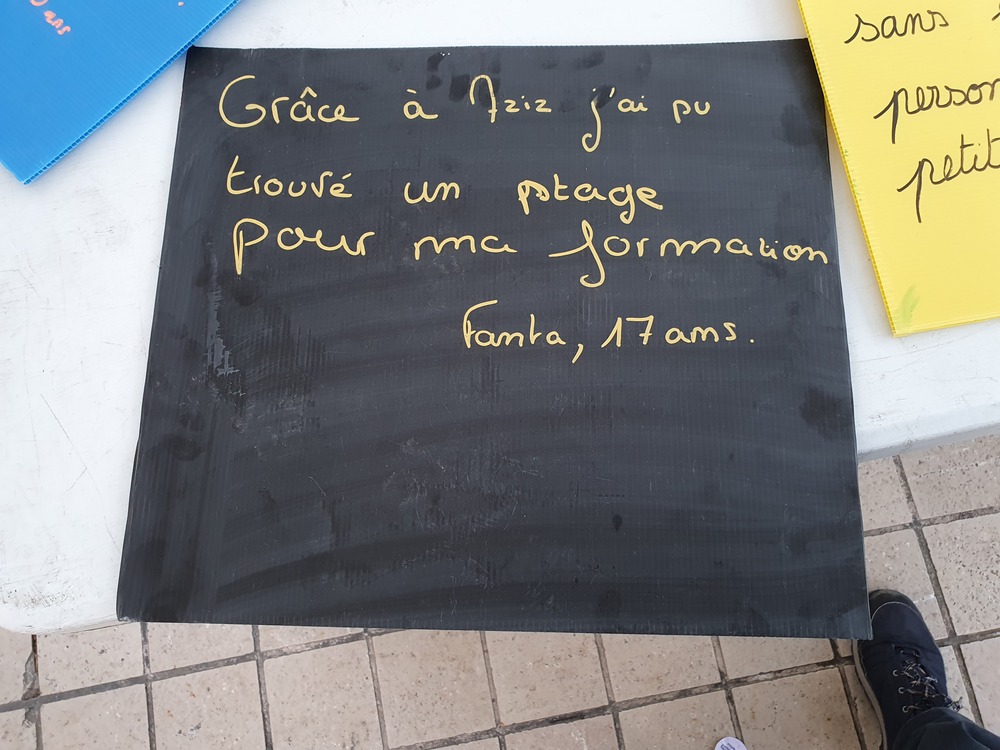 ans
Grâce à Aziz j'ai pu
trouvé un stage
pour ma formation
Fanta, 17 ans.
sans
person
petit